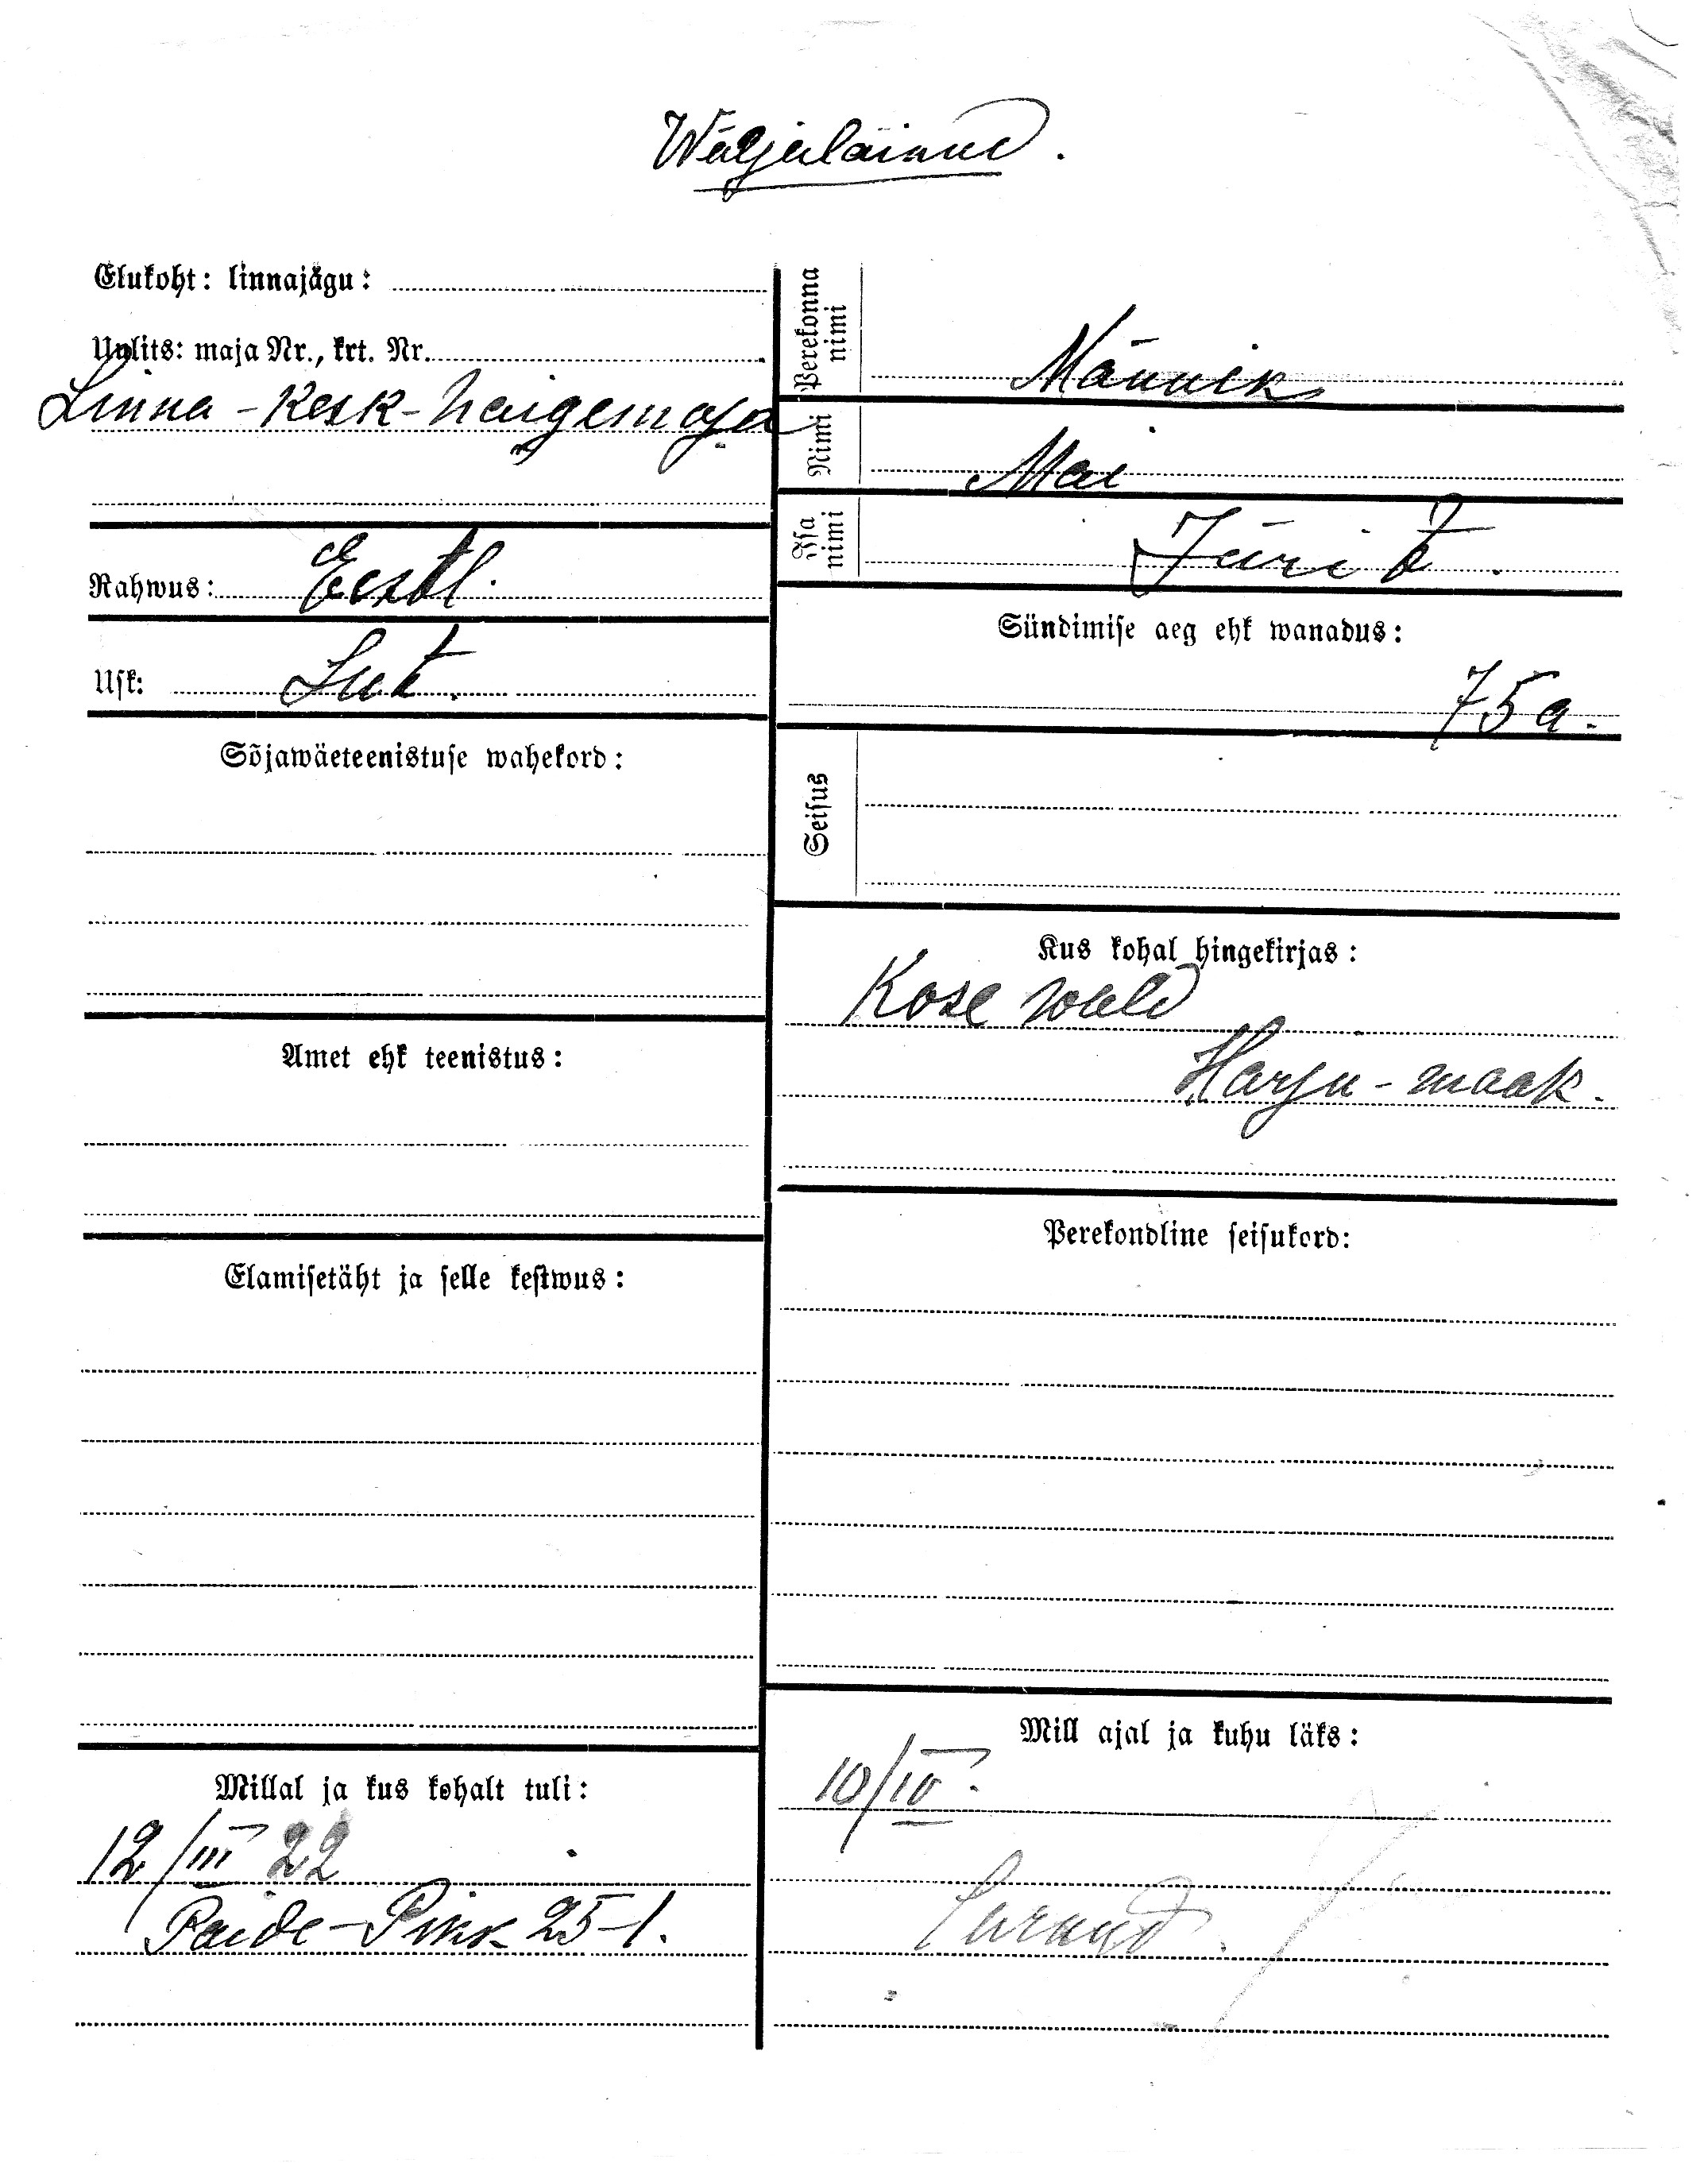 Wäljaläinud.
Elukoht: linnajägu:
Uulits: maja Nr., krt. Nr.
Linna-Kesk-haigemaja
Rahwus: Eestl.
Usk: Lut.
Sõjawäeteenistuse wahekord:
Amet ehk teenistus:
Elamisetäht ja selle kestwus:
Millal ja kus kohalt tuli:
12/III 22
Paide-Pikk 25-1.
Perekonna nimi
Männik
Nimi
Mai
Isa nimi
Jüri t.
Sündimise aeg ehk wanadus:
75 a.
Seisus
Kus kohal hingekirjas:
Kose wald
Harju-maak.
Perekondline seisukord:
Mill ajal ja kuhu läks:
10/IV.
Surnud.